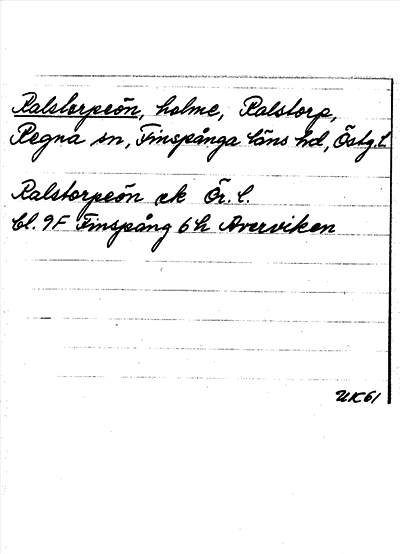 Ralstorpeön, holme, Ralstorp,
Regna sn, Finspånga läns hd, Östg.l
Ralstorpeön ek Ör. l.
bl. 9F Finspång 6h Averviken
UK61